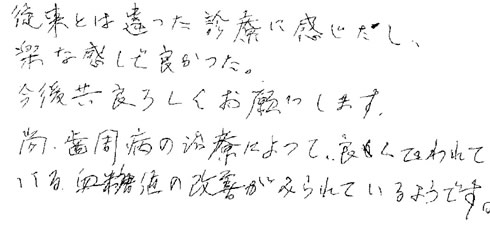 従来とは違った診療に感じたし、
楽な感じで良かった。
今後共良ろしくお願いします。
尚、歯周病の治療によって、良くて言われて
いる血糖値の改善がみられているようです。